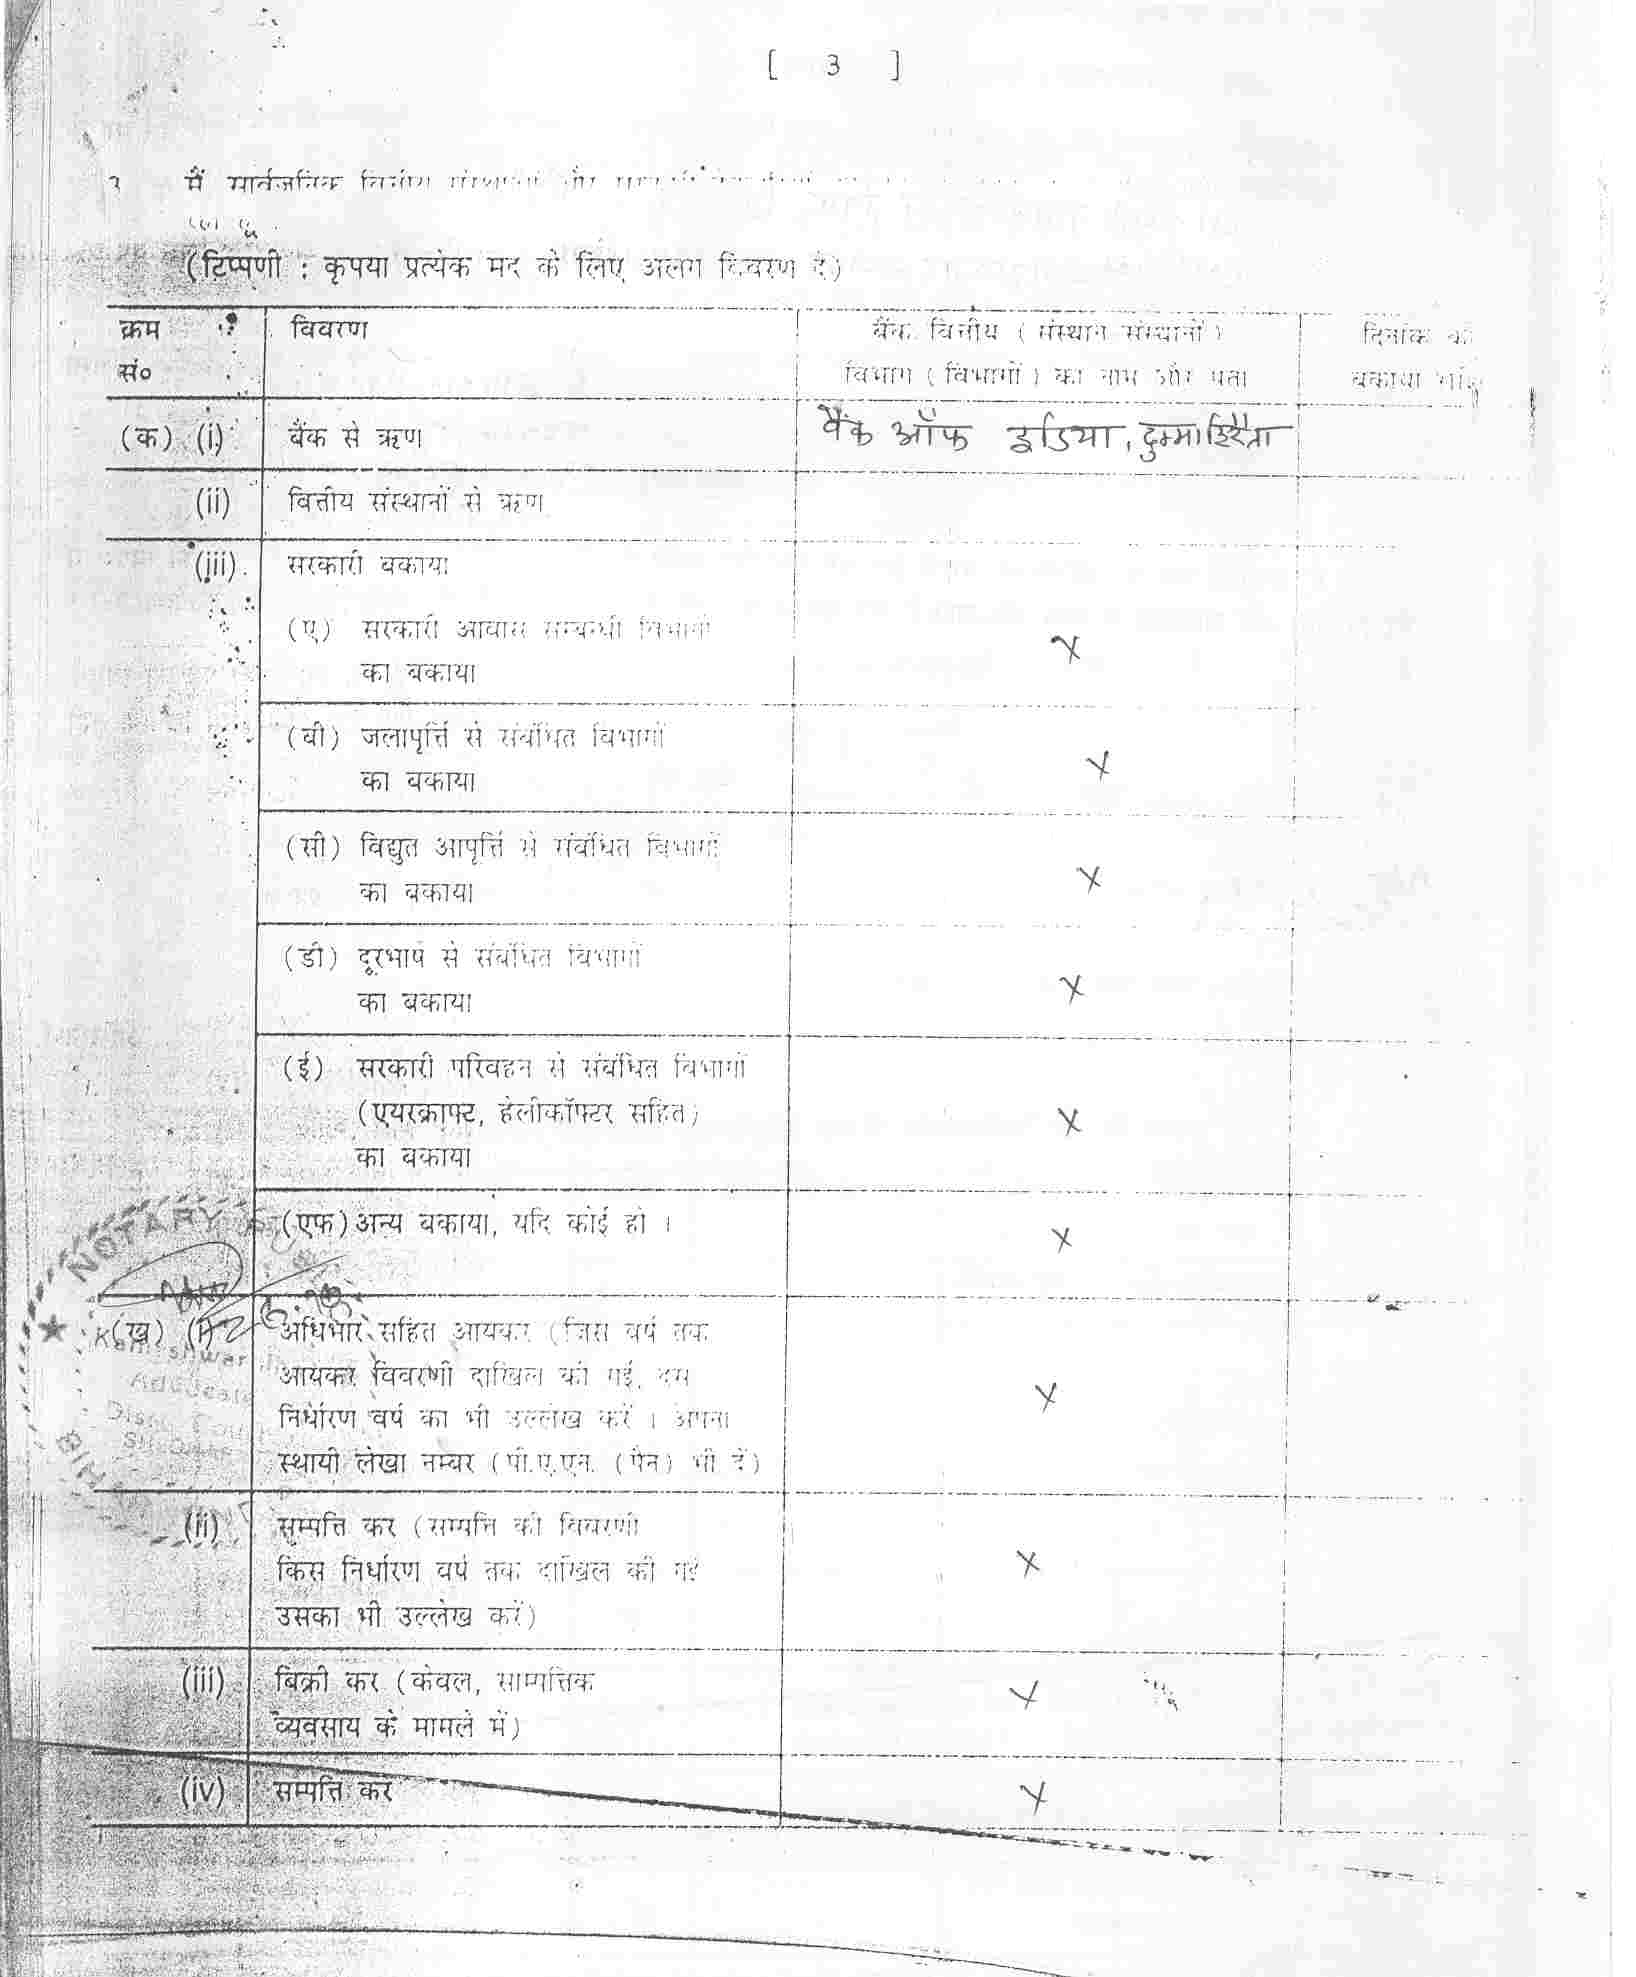 [ 3 ]
मैं सार्वजनिक वित्तीय
(टिप्पणी : कृपया प्रत्येक मद के लिए अलग विवरण दें)
क्रम सं० विवरण बैंक वित्तीय (संस्थान संस्थानों) दिनांक को
विभाग (विभागों) का नाम और पता बकाया राशि
(क) (i) बैंक से ऋण बैंक ऑफ इडिया,
(ii) वित्तीय संस्थानों से ऋण
(iii) सरकारी बकाया
(ए) सरकारी आवास सम्बन्धी विभागों
का बकाया X
(बी) जलापूर्त्ति से संबंधित विभागों
का बकाया X
(सी) विद्युत आपूर्त्ति से संबंधित विभागों
का बकाया X
(डी) दूरभाष से संबंधित विभागों
का बकाया X
(ई) सरकारी परिवहन से संबंधित विभागों
(एयरक्राफ्ट, हेलीकॉफ्टर सहित) X
का बकाया
(एफ) अन्य बकाया, यदि कोई हो । X
NOTARY
(ख) (i) अधिभार सहित आयकर (जिस वर्ष तक
आयकर विवरणी दाखिल की गई, उस
निर्धारण वर्ष का भी उल्लेख करें । अपना X
स्थायी लेखा नम्बर (पी.ए.एन. (पैन) भी दें)
(ii) सम्पत्ति कर (सम्पत्ति की विवरणी
किस निर्धारण वर्ष तक दाखिल की गई X
उसका भी उल्लेख करें)
(iii) बिक्री कर (केवल, साम्पत्तिक X
व्यवसाय के मामले में)
(iv) सम्पत्ति कर X